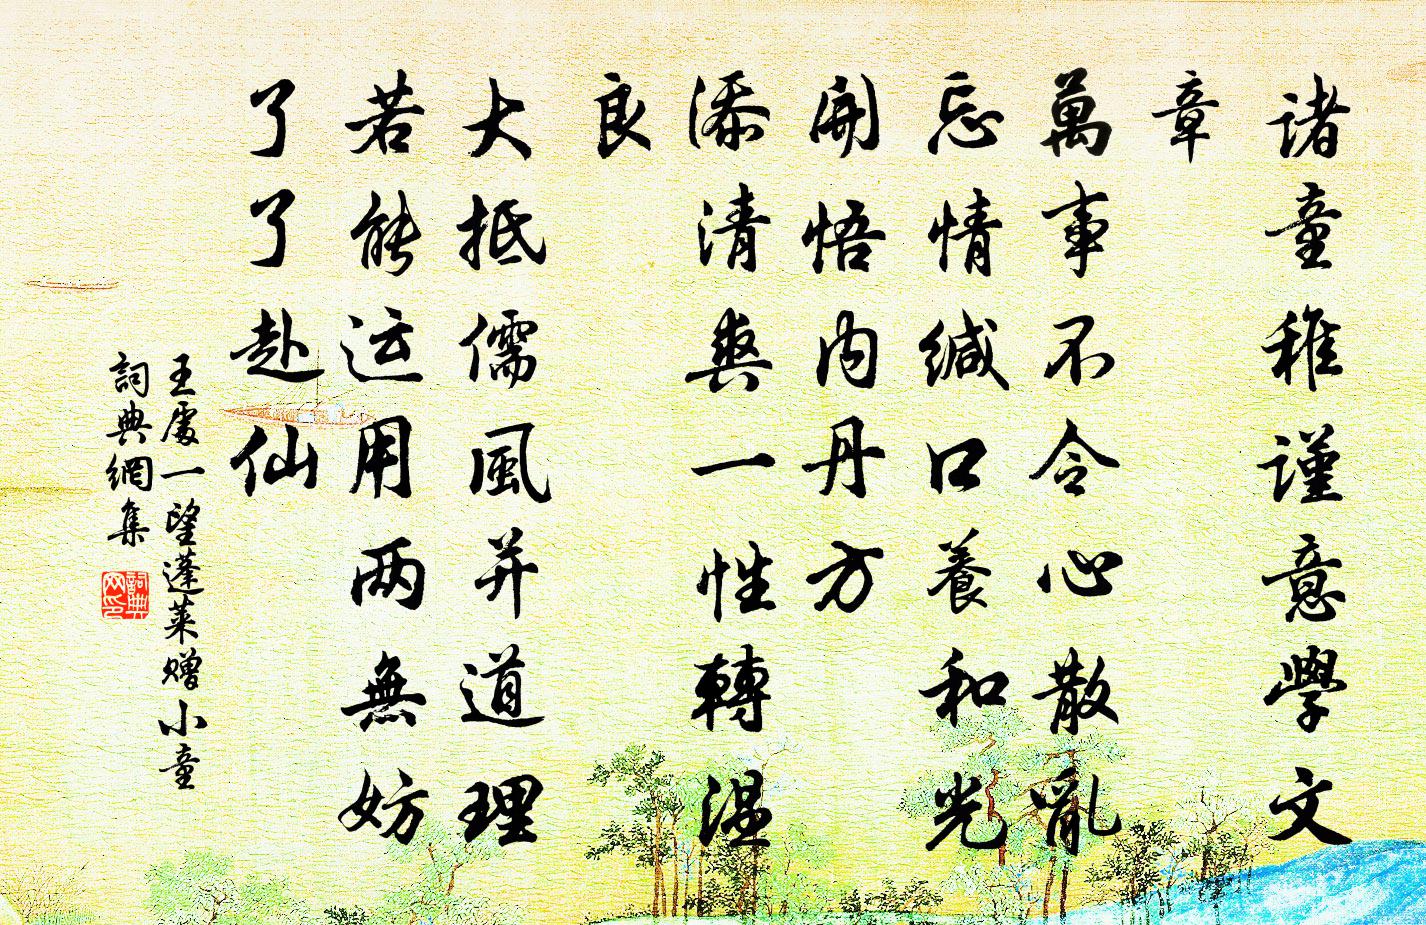 諸童稚謹意學文
章
萬事不令心散亂
忘情緘口養和光
開悟內丹方
添清爽一性轉温
良
大抵儒風并道理
若能运用两無妨
了了赴仙
王處一望蓬萊赠小童
詞典網集
詞典
网印